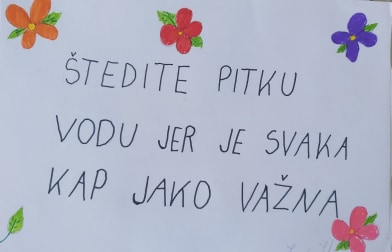 ŠTEDITE PITKU
VODU JER JE SVAKA
KAP JAKO VAŽNA